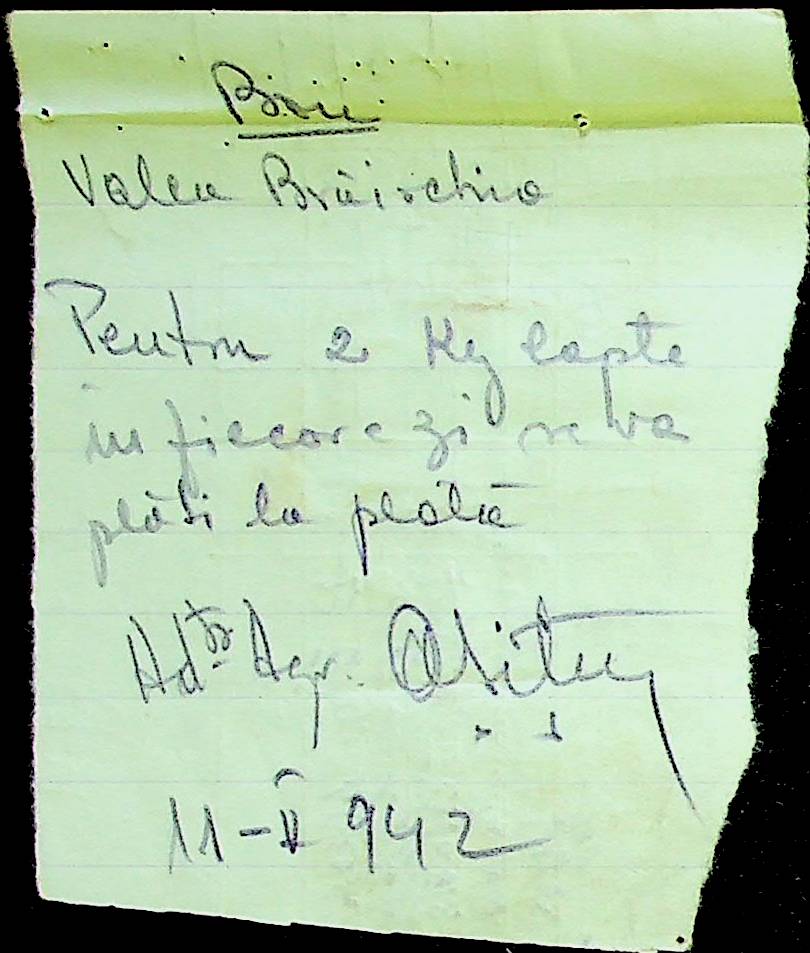 Bon
Valea
Pentru 2 Kg lapte
in fiecare zi se va
plăti la plată
Adtr Agr.
11-II 942